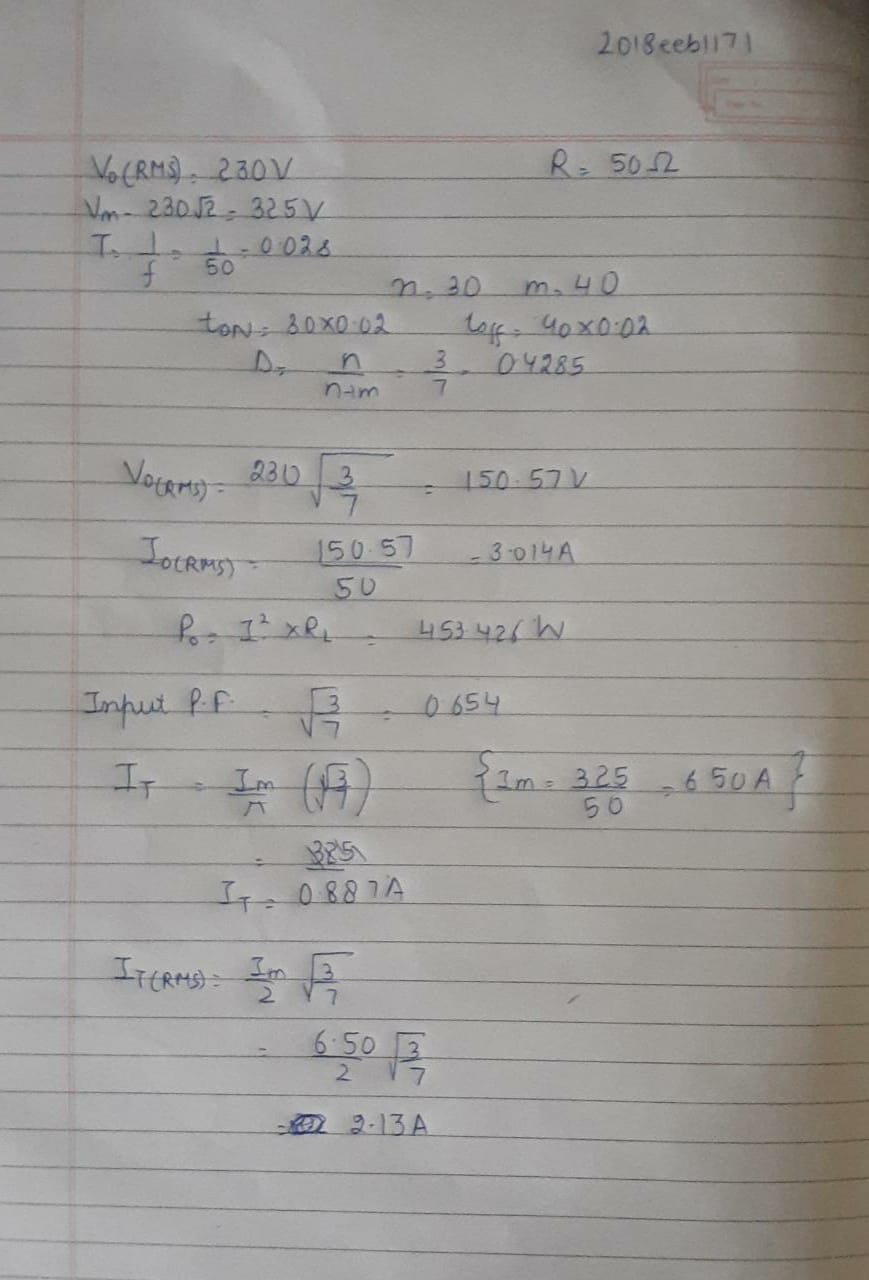 2018eeb1171
Vo(RMS) = 230V R = 50Ω
Vm = 230√2 = 325V
T = 1/f = 1/50 = 0.02s
n = 30 m = 40
ton = 30×0.02 toff = 40×0.02
D = n/n+m = 3/7 = 0.4285
Vo(RMS) = 230 √3/7 = 150.57V
Io(RMS) = 150.57/50 = 3.014A
Po = I² × RL = 453.426 W
Input P.F. = √3/7 = 0.654
IT = Im/π (√3/7) {Im = 325/50 = 6.50A}
=
IT = 0.887A
IT(RMS) = Im/2 √3/7
= 6.50/2 √3/7
= 2.13A